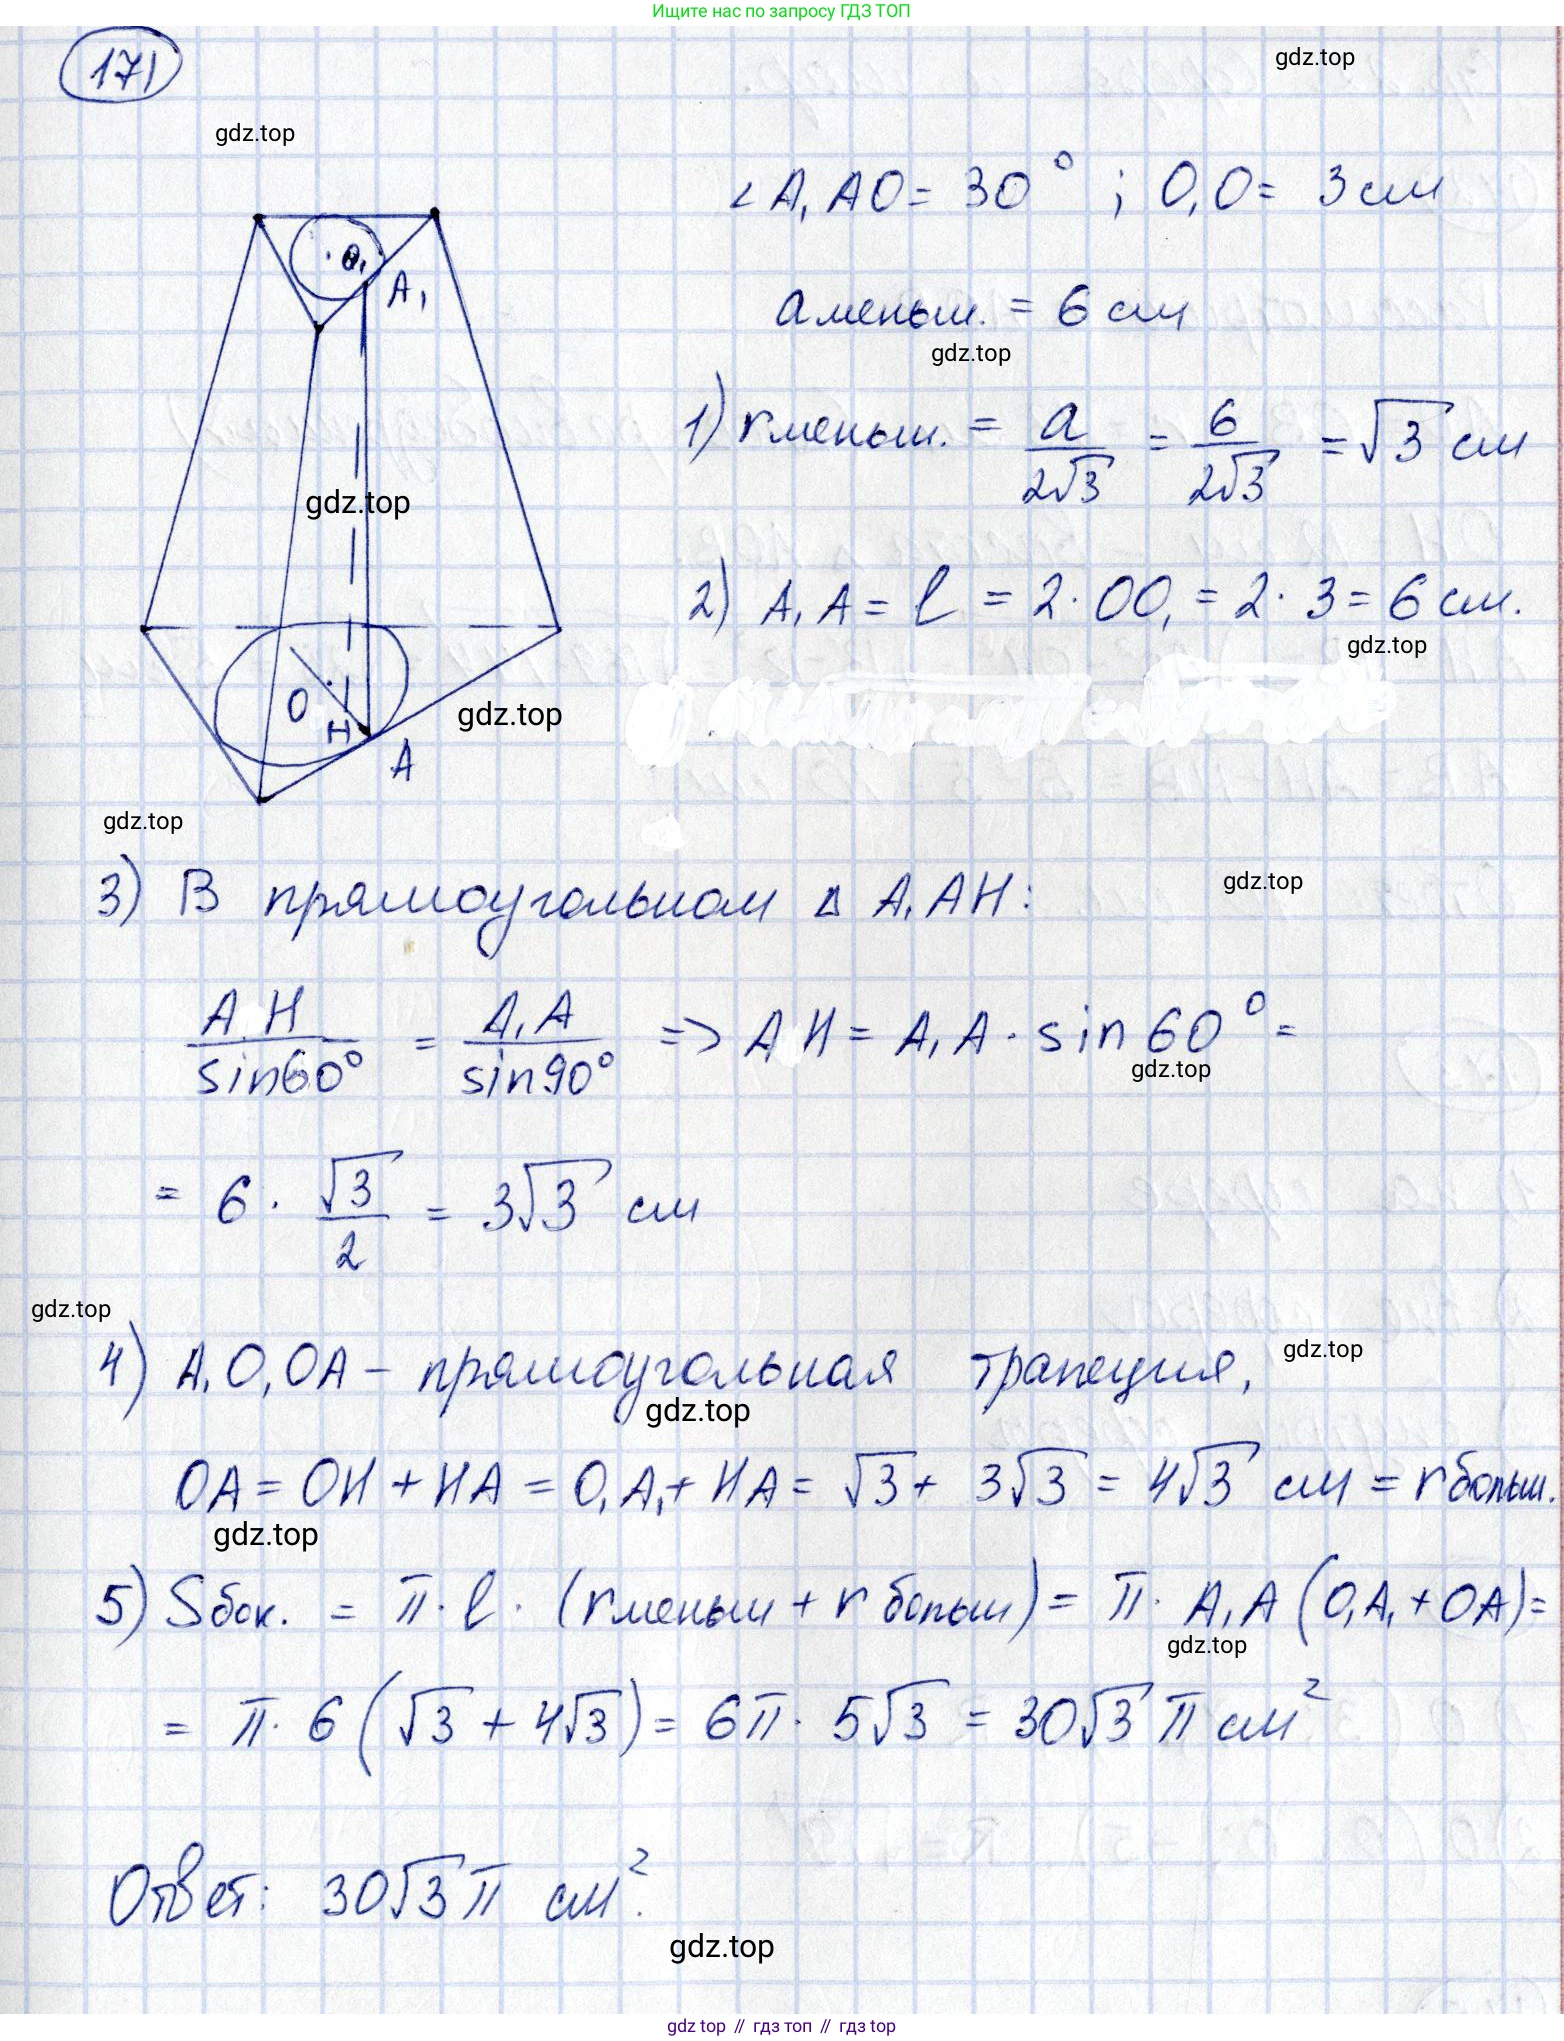 Ищите нас по запросу ГДЗ ТОП
171
gdz.top
gdz.top
∠A₁AO = 30° ; O₁O = 3 см
O₁
A₁
a меньш. = 6 см
gdz.top
1) r меньш. = a/(2√3) = 6/(2√3) = √3 см
gdz.top
2) A₁A = l = 2 · OO₁ = 2 · 3 = 6 см.
gdz.top
O
H
A
gdz.top
gdz.top
3) В прямоугольном Δ A₁AH:
gdz.top
AH/sin60° = A₁A/sin90° => AH = A₁A · sin 60° =
gdz.top
= 6 · √3/2 = 3√3 см
gdz.top
4) A₁O₁OA – прямоугольная трапеция,
gdz.top
gdz.top
OA = OH + HA = O₁A₁ + HA = √3 + 3√3 = 4√3 см = r больш.
gdz.top
5) Sбок. = π · l · (r меньш + r больш) = π · A₁A (O₁A₁ + OA) =
gdz.top
= π · 6 (√3 + 4√3) = 6π · 5√3 = 30√3 π см²
Ответ: 30√3 π см².
gdz.top
gdz top // гдз топ // гдз top